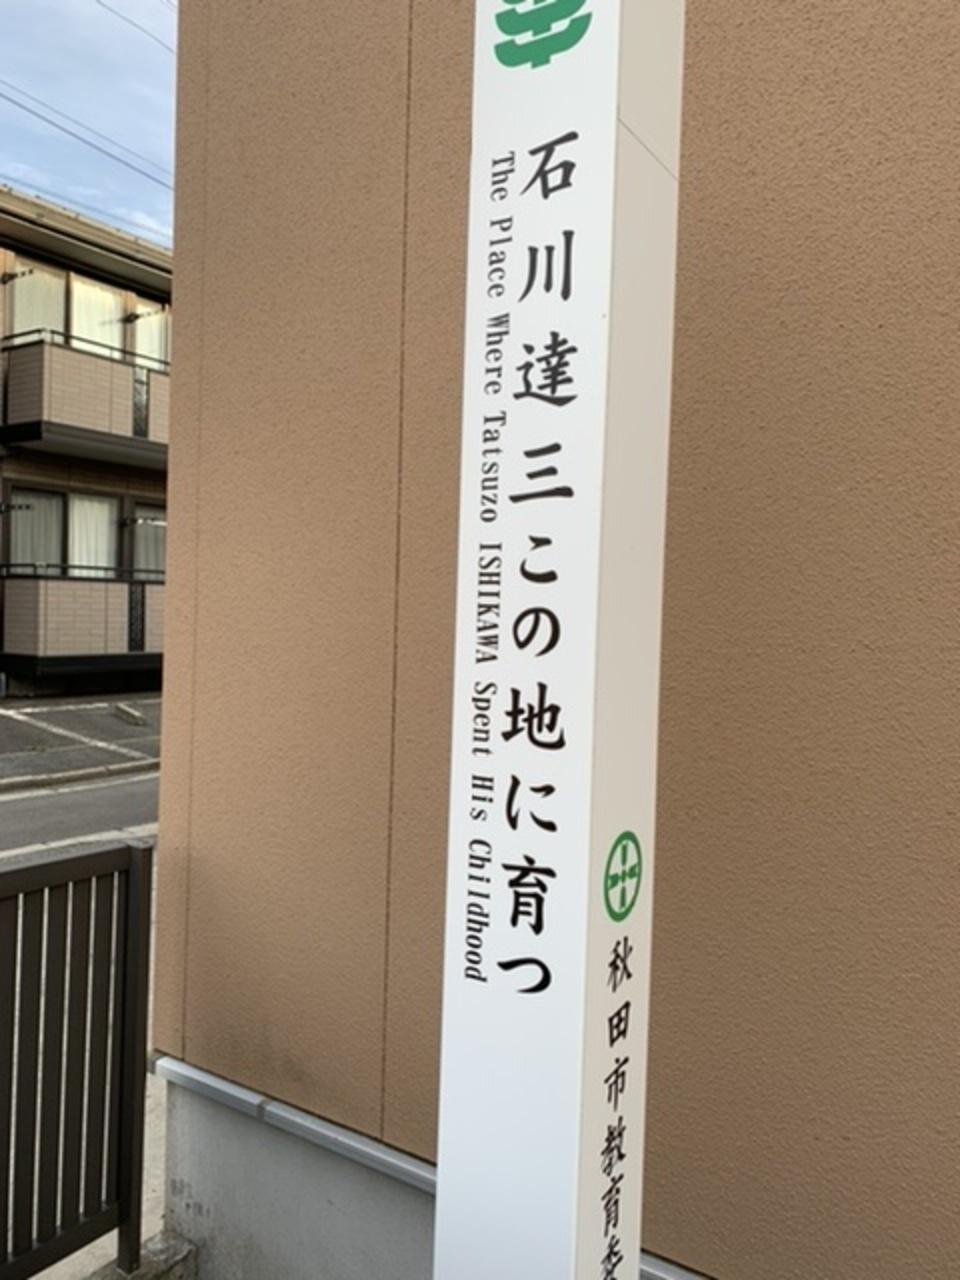 石川達三この地に育つ
The Place Where Tatsuzo ISHIKAWA Spent His Childhood
秋田市教育委